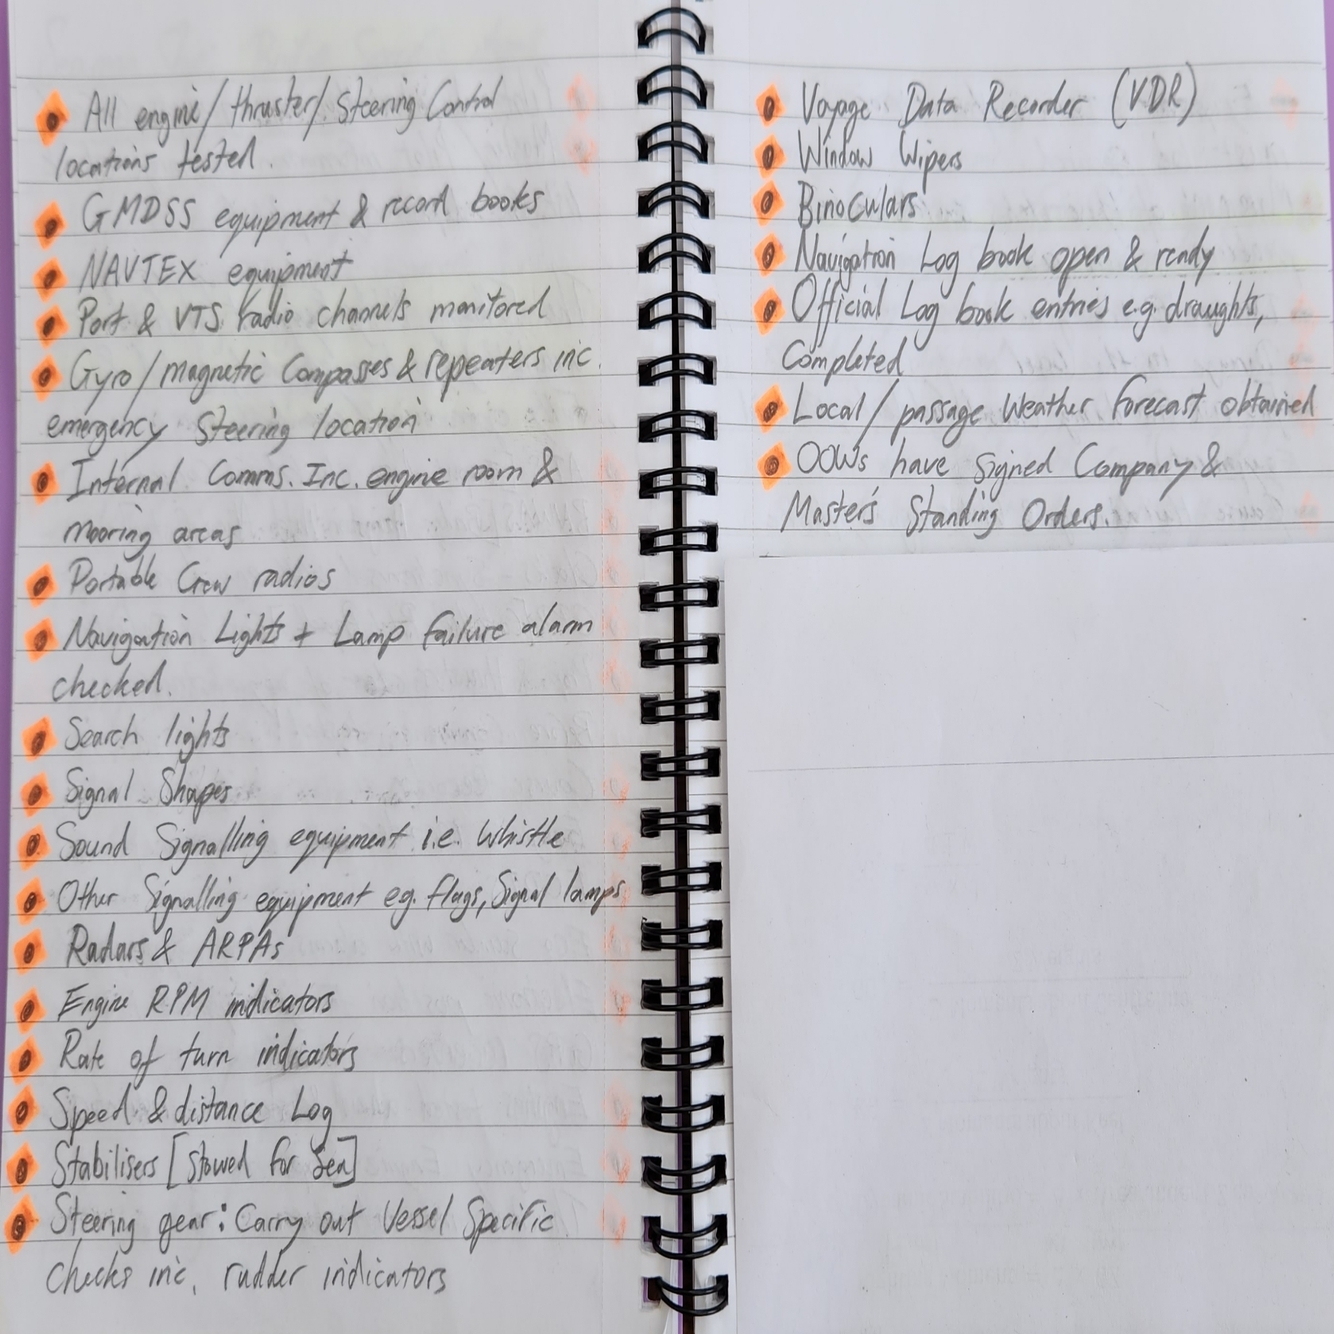 All engine/thruster/Steering Control
locations tested.
GMDSS equipment & record books
NAVTEX equipment
Port & VTS radio channels monitored
Gyro/magnetic Compasses & repeaters inc.
emergency Steering location
Internal Comms. Inc. engine room &
mooring areas
Portable Crew radios
Navigation Lights + Lamp failure alarm
checked.
Search lights
Signal Shapes
Sound Signalling equipment i.e. Whistle
Other Signalling equipment eg. flags, Signal lamps
Radars & ARPAs
Engine RPM indicators
Rate of turn indicators
Speed & distance Log
Stabilisers [Stowed for Sea]
Steering gear: Carry out Vessel Specific
Checks inc. rudder indicators
Voyage Data Recorder (VDR)
Window Wipers
Binoculars
Navigation Log book open & ready
Official Log book entries e.g. draughts,
Completed
Local/passage Weather Forecast obtained
OOWs have Signed Company &
Master's Standing Orders.